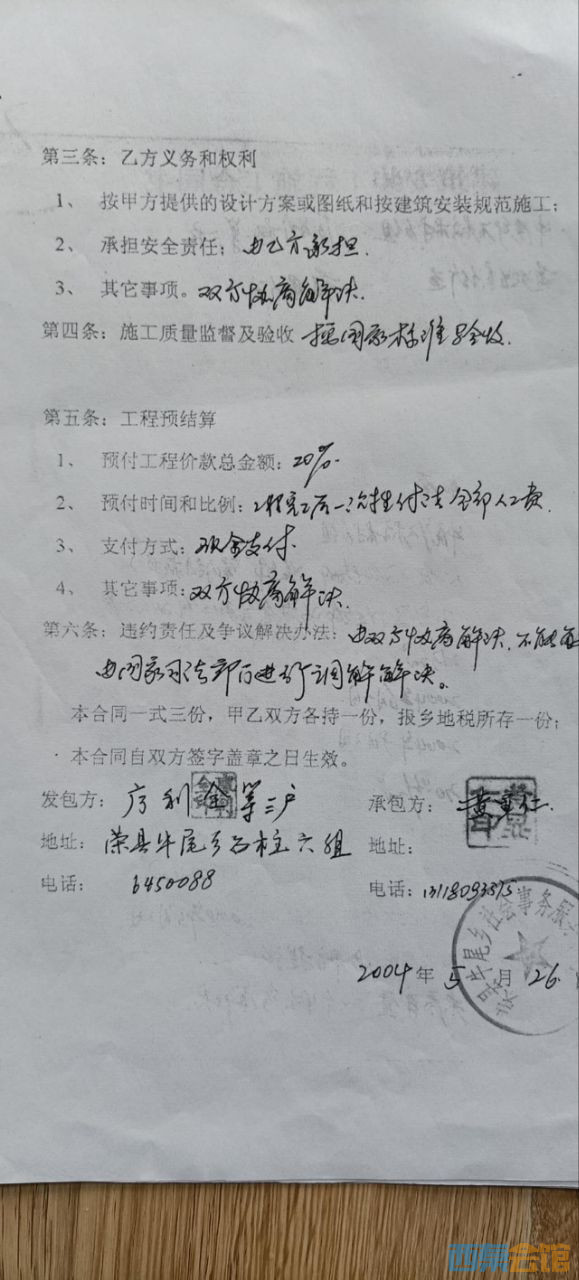 第三条：乙方义务和权利
1、 按甲方提供的设计方案或图纸和按建筑安装规范施工；
2、 承担安全责任；由乙方承担.
3、 其它事项。双方协商解决.
第四条：施工质量监督及验收 按国家标准验收.
第五条：工程预结算
1、 预付工程价款总金额：20%.
2、 预付时间和比例：工程完工后一次性付清全部人工费.
3、 支付方式：现金支付.
4、 其它事项：双方协商解决.
第六条：违约责任及争议解决办法：由双方协商解决.不能
由国家司法部门进行调解解决。
本合同一式三份，甲乙双方各持一份，报乡地税所存一份；
本合同自双方签字盖章之日生效。
发包方： 利金等三户 承包方： 黄
地址： 荣县牛尾乡石柱六组 地址：
电话： 6450088 电话：
2004年5月26
牛尾乡社会事务服
西祠会馆